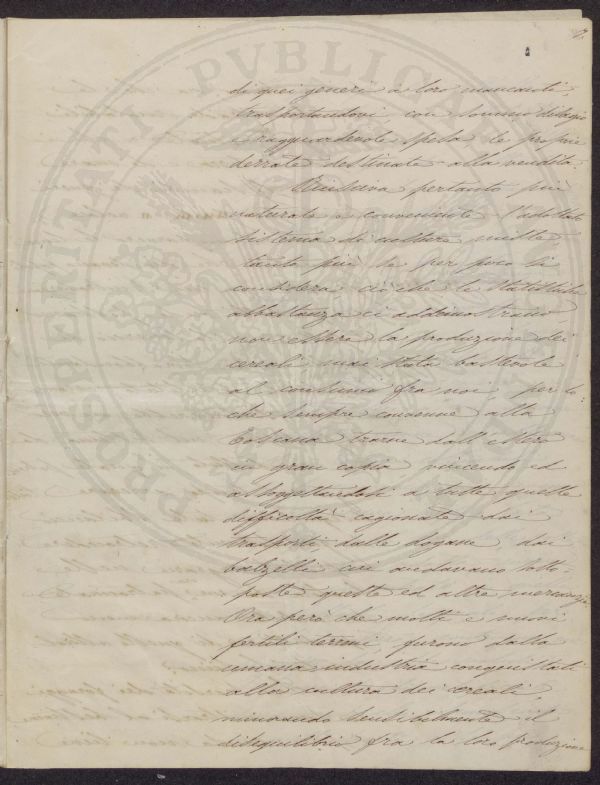 2.
di quei generi a loro mancanti,
trasportandovi con sommo disagio
e ragguardevole spesa le proprie
derrate destinate alla vendita.
Riusciva pertanto più
naturale e conveniente l'adottato
sistema di culture miste
tanto più se per poco si
considera ciò che le statistiche
abbastanza ci addimostrano
non essere la produzione dei
cereali mai stata bastevole
al consumo fra noi, per lo
che sempre convenne alla
Toscana trarne dall'estero
in gran copia vincendo ed
assoggettandosi a tutte quelle
difficoltà cagionate dai
trasporti, dalle dogane dai
balzelli, cui andavano sotto-
poste queste ed altre mercanzie
Ora però che molti e nuovi
fertili terreni furono dalla
umana industria conquistati
alla cultura dei cereali,
minorando sensibilmente il
disequilibrio fra la loro produzione
PROSPERITATI PVBLICAE